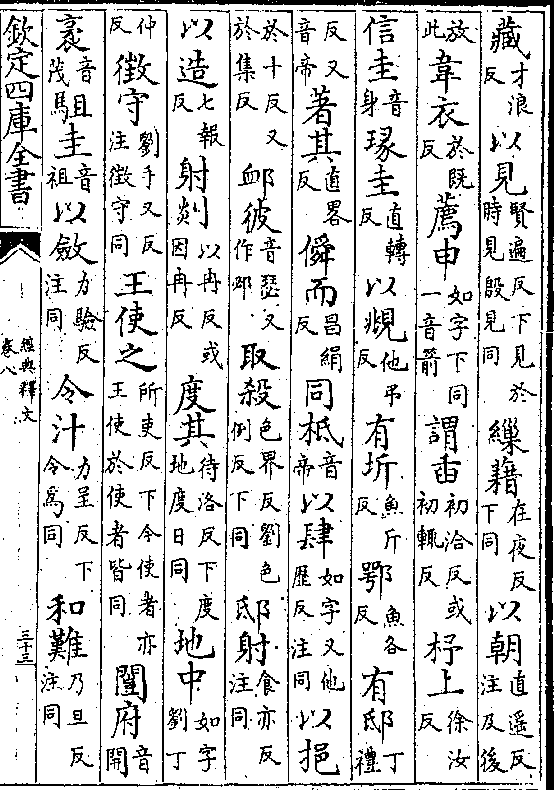 藏才浪反以見賢遍反下見於時見殷見同繅藉在夜反下同以朝直遥反注及後
放此韋衣於既反薦申如字下同一音箭謂臿初洽反或初輒反杼上徐汝反
信圭音身瑑圭直轉反以覜他弔反有圻魚斤反鄂魚各反有邸丁禮
反又音帝著其直畧反僢而昌絹反同柢音帝以肆如字又他歷反注同以挹
於十反又於集反卹彼音瑟又作䘏取殺色界反劉色例反下同邸射食亦反注同
以造七報反射剡以冉反或因冉反度其待洛反下度地度日同地中如字劉丁
仲反徵守劉手又反注徵守同王使之所吏反下令使者亦王使於使者皆同闓府音開
袤音茂駔圭音祖以斂力驗反注同令汁力呈反下令為同和難乃旦反注同
欽定四庫全書
經典釋文
卷八
三十三